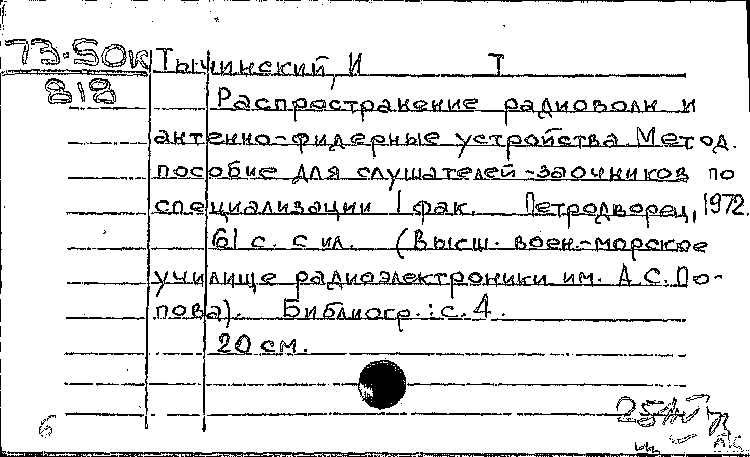 73-50к Тычинский, И Т
818 Распространение радиоволн и
антенно-фидерные устройства. Метод.
пособие для слушателей-заочников по
специализации 1 фак. Петродворец, 1972.
61 с. с ил. (Высш. воен.-морское
училище радиоэлектроники им. А.С. По-
пова). Библиогр.: с. 4.
20 см.
6